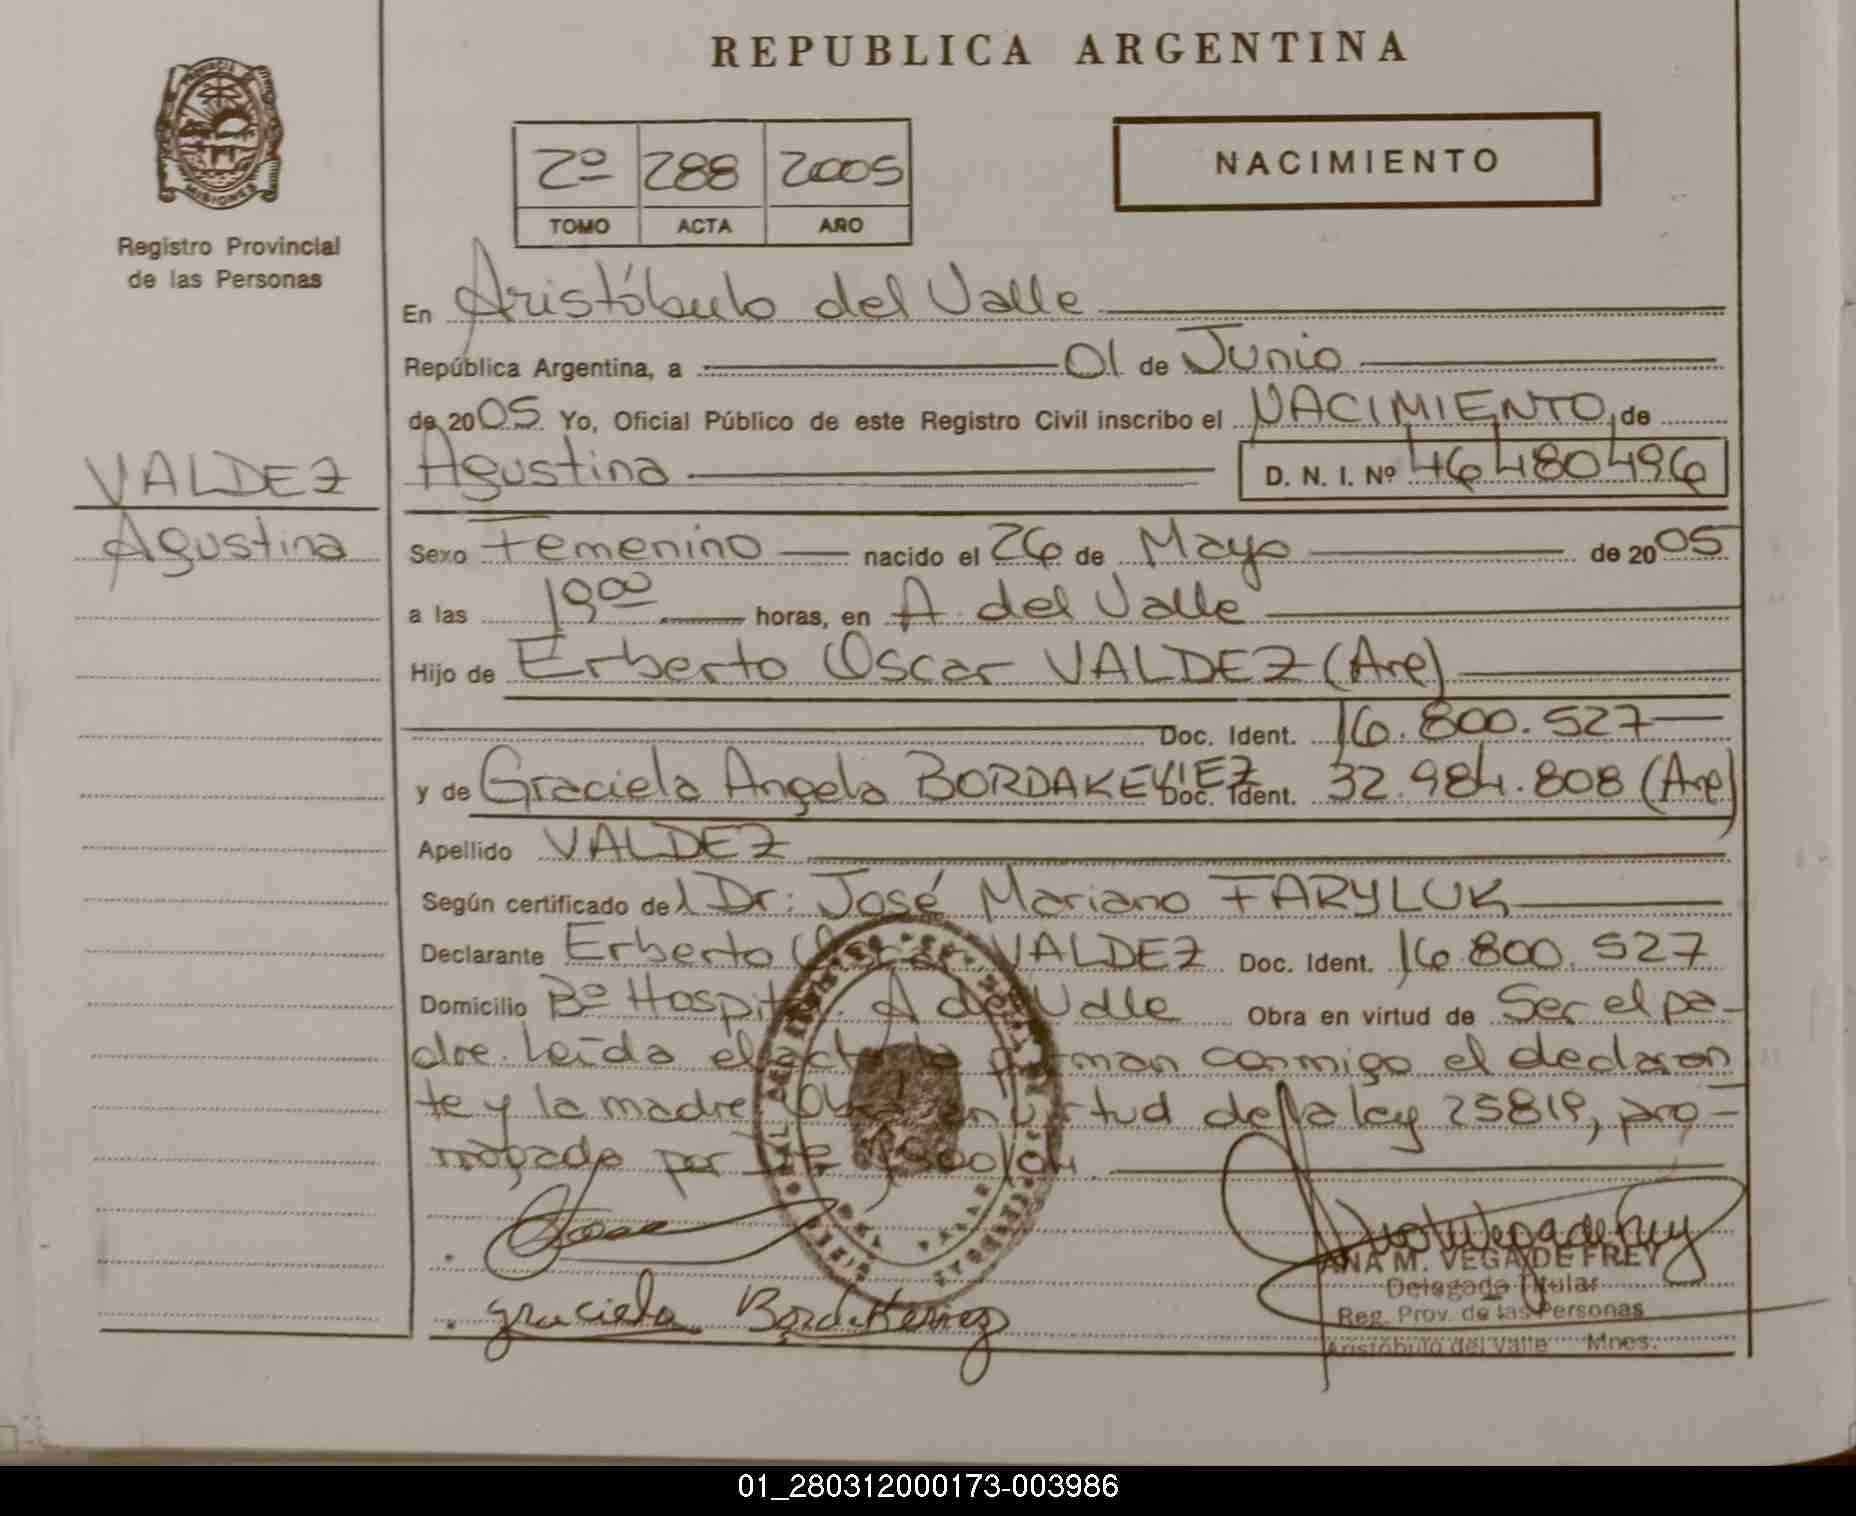 REPUBLICA ARGENTINA
PROVINCIA DE MISIONES
Registro Provincial
de las Personas
2º 288 2005
TOMO ACTA AÑO
NACIMIENTO
En Aristóbulo del Valle
República Argentina, a 01 de Junio
de 2005 Yo, Oficial Público de este Registro Civil inscribo el NACIMIENTO, de
Agustina D. N. I. Nº 46480496
VALDEZ
Agustina
Sexo Femenino nacido el 26 de Mayo de 2005
a las 19 00 horas, en A. del Valle
Hijo de Erberto Oscar VALDEZ (Arg)
Doc. Ident. 16.800.527
y de Graciela Angela BORDAKEVIEZ Doc. Ident. 32.984.808 (Arg)
Apellido VALDEZ
Según certificado del Dr: José Mariano FARYLUK
Declarante Erberto Oscar VALDEZ Doc. Ident. 16.800.527
Domicilio Bº Hospital. A del Valle Obra en virtud de Ser el pa-
dre. Leída el acta la firman conmigo el declaran
te y la madre. Obra en virtud de la ley 25819, pro-
rrogado por
Graciela Bordakeviez
ANA M. VEGA DE FREY
Delegada Titular
Reg. Prov. de las Personas
Aristóbulo del Valle Mnes.
01_280312000173-003986